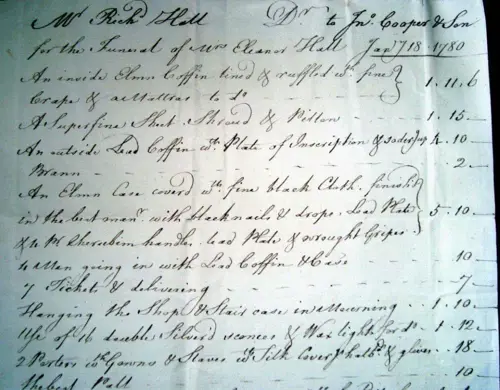 Mr. Richd. Hall Dr. to Jno. Cooper & Son
for the Funeral of Mrs Eleanor Hall Jany 18 1780
An inside Elmn Coffin lin'd & ruffled wth. fine
Crape & a Mattras to do 1 . 11 . 6
A Superfine Sheet Shroud & Pillow 1 . 15 -
An outside Lead Coffin wth. Plate of Inscription & soder'd up 4 . 10 -
Brann - - 2 -
An Elmn Case coverd wth. fine black Cloth finish'd
in the best manr. with black nails & drops. Lead Plate 5 . 10 -
& 4 Pr Cherebim handles. lead Plate & wrought Gripes
4 Men going in with Lead Coffin & Case 10 -
7 Tickets & delivering 7 -
Hanging the Shop & Stair case in Mourning 1 . 10 -
Use of 16 double Silverd sconces & Wax light for do 1 . 12 -
2 Porters wth. Gowns & Staves wth. Silk Covers, hatbd. & gloves 18 -
The best Pall 10